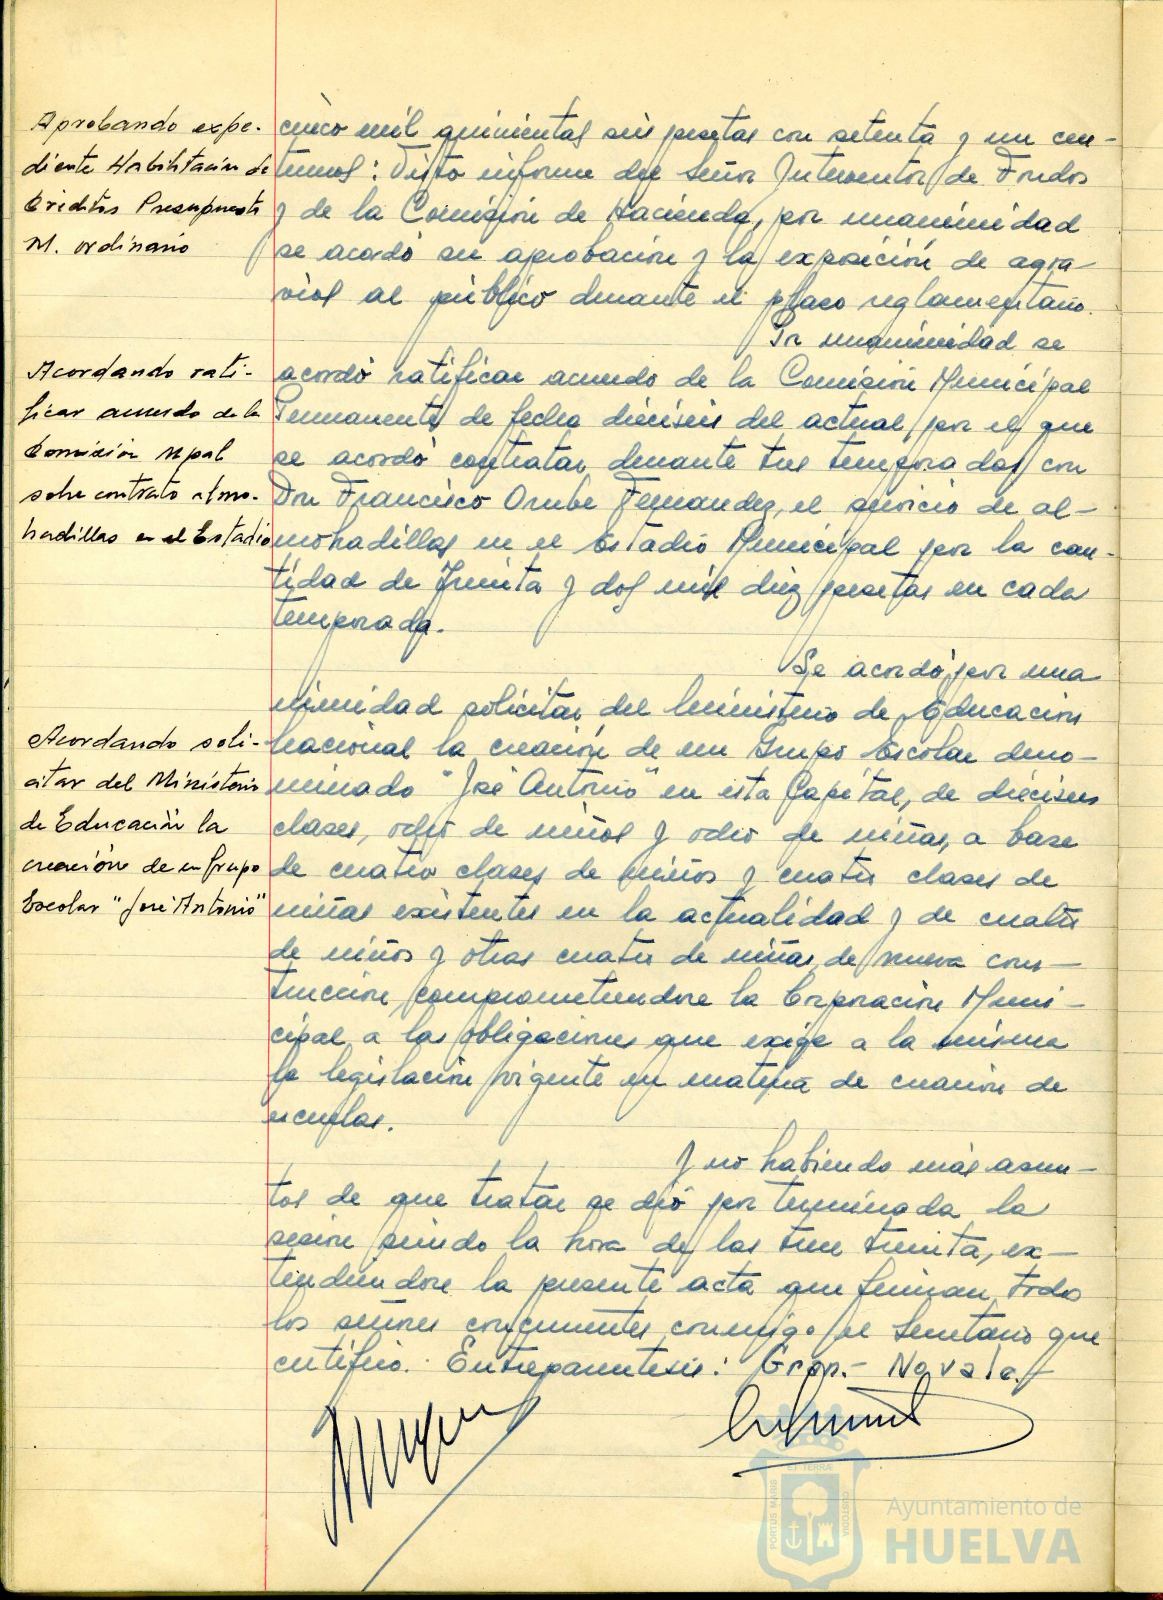 Aprobando expe-
diente Habilitación de
Créditos Presupuesto
M. ordinario
cinco mil quinientas seis pesetas con setenta y un cén-
timos: Visto informe del Señor Interventor de Fondos
y de la Comisión de Hacienda, por unanimidad
se acordó su aprobación y la exposición de agra-
vios al público durante el plazo reglamentario.
Por unanimidad se
Acordando rati-
ficar acuerdo de la
Comisión Mpal
sobre contrato almo-
hadillas en el Estadio
acordó ratificar acuerdo de la Comisión Municipal
Permanente de fecha dieciseis del actual, por el que
se acordó contratar durante tres temporadas con
Don Francisco Fernandez, el servicio de al-
mohadillas en el Estadio Municipal por la can-
tidad de Treinta y dos mil diez pesetas en cada
temporada.
Se acordó por una
nimidad solicitar del Ministerio de Educación
Acordando soli-
citar del Ministerio
de Educación la
creación de un Grupo
Escolar "José Antonio"
Nacional la creación de un Grupo Escolar deno-
minado "José Antonio" en esta Capital, de dieciseis
clases, ocho de niños y ocho de niñas, a base
de cuatro clases de niños y cuatro clases de
niñas existentes en la actualidad y de cuatro
de niños y otras cuatro de niñas de nueva cons-
trucción, comprometiendose la Corporación Muni-
cipal a las obligaciones que exige a la misma
la legislación vigente en materia de creación de
escuelas.
Y no habiendo más asun-
tos de que tratar se dió por terminada la
sesión siendo la hora de las trece treinta, ex-
tendiendose la presente acta que firman todos
los señores concurrentes conmigo el Secretario que
certifico. Entreparentesis: Grop.- No vale.-
PORTUS MARIS
ET TERRÆ
CUSTODIA
Ayuntamiento de
HUELVA